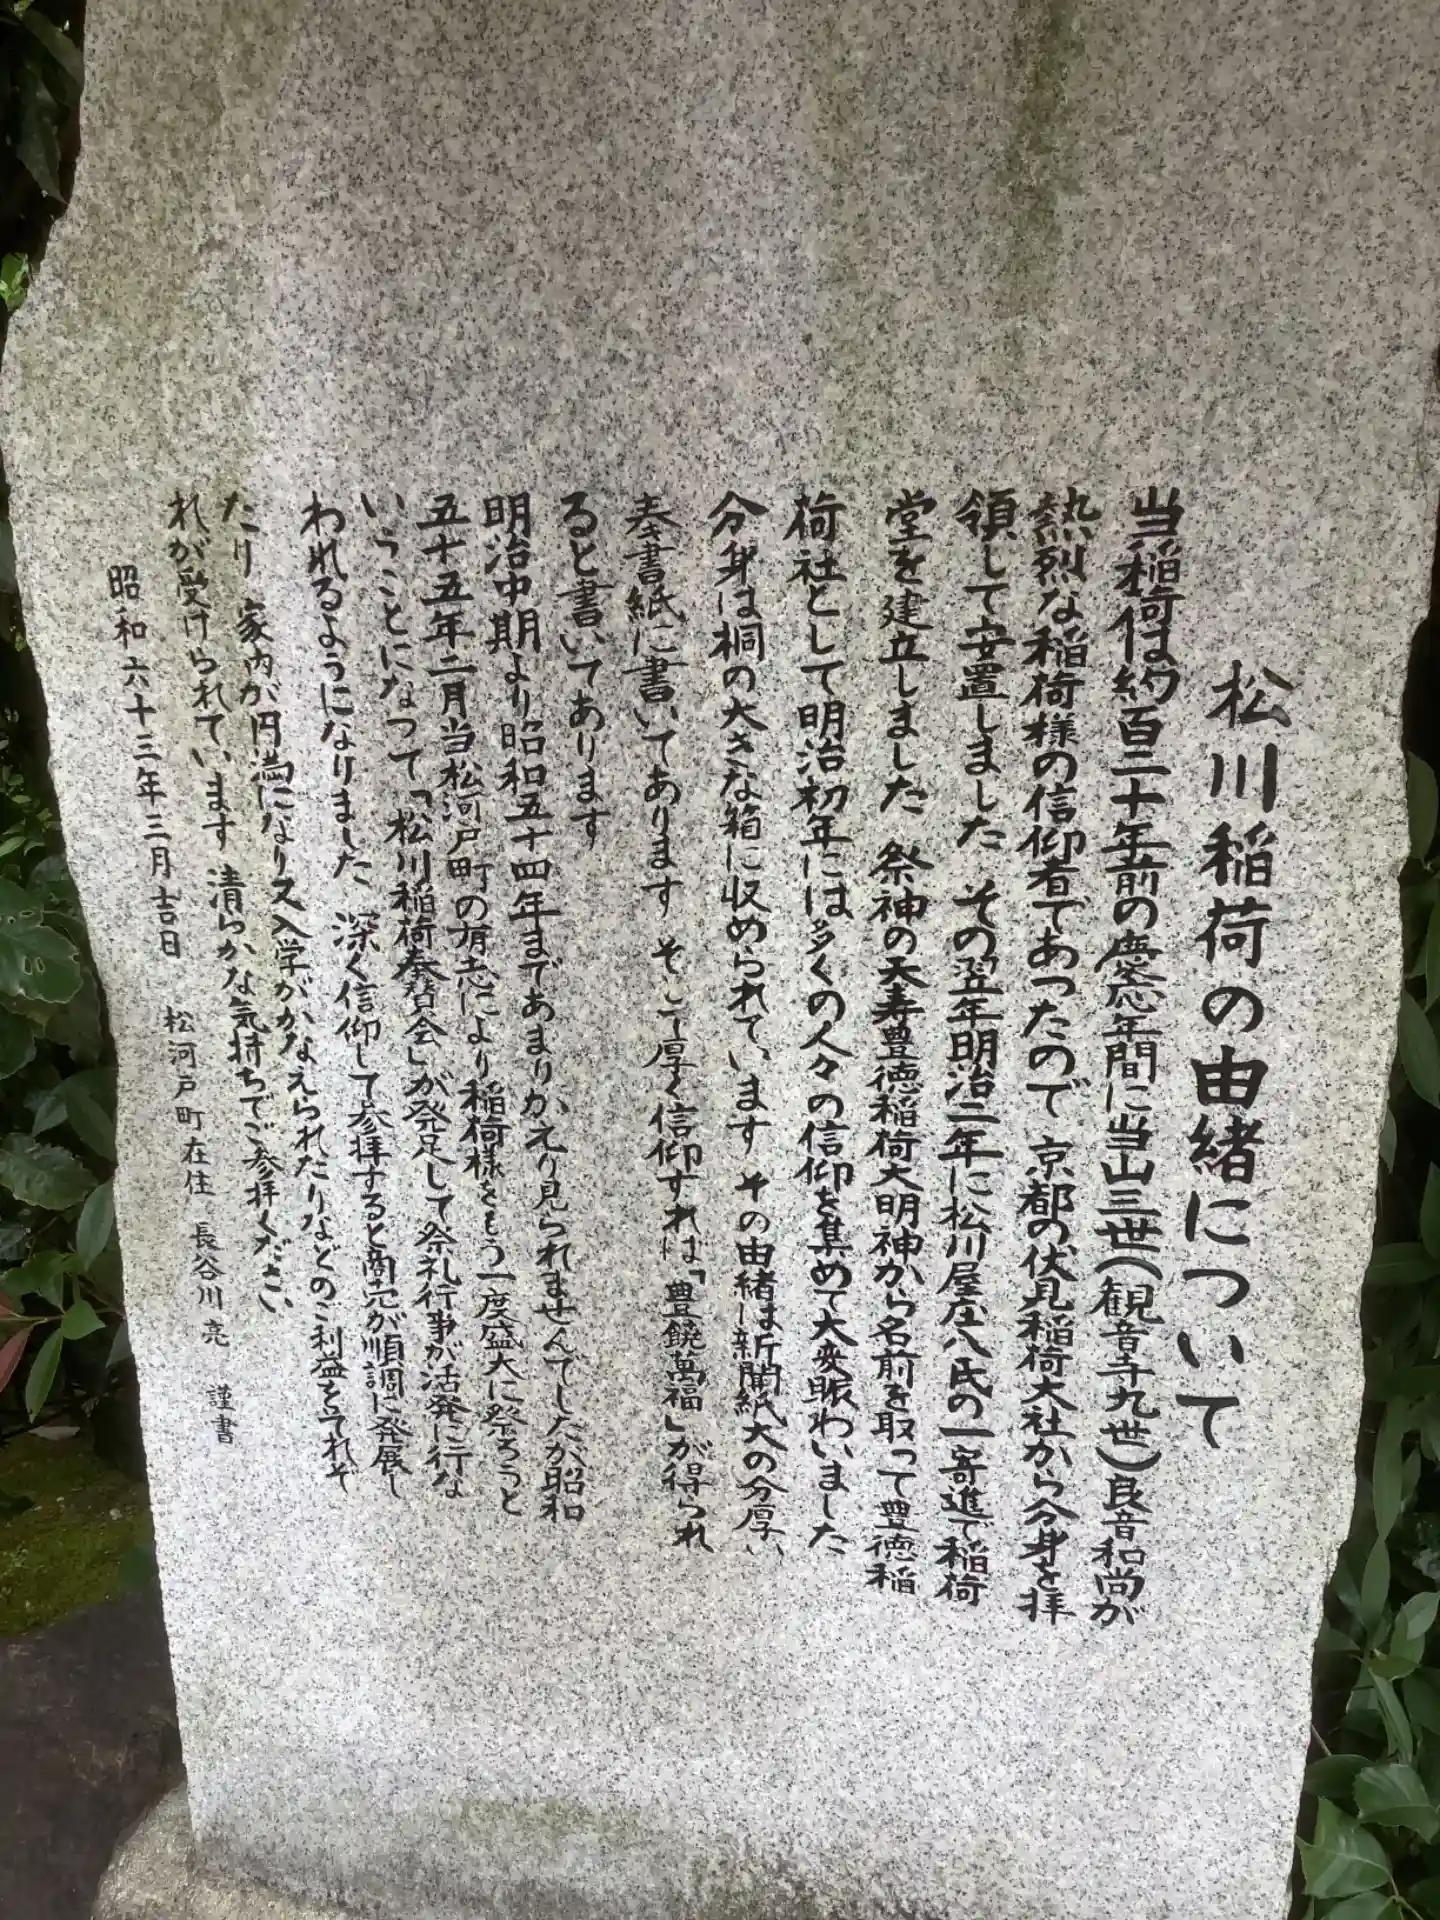 松川稲荷の由緒について
当稲荷は約百二十年前の慶応年間に当山三世(観音寺九世)良音和尚が
熱烈な稲荷様の信仰者であつたので 京都の伏見稲荷大社から分身を拝
領して安置しました その翌年明治二年に松川屋庄八氏の一寄進で稲荷
堂を建立しました 祭神の天寿豊徳稲荷大明神から名前を取って豊徳稲
荷社として明治初年には多くの人々の信仰を集めて大変賑わいました
分身は桐の大きな箱に収められています その由緒は新聞紙大の分厚い
奉書紙に書いてあります そこに厚く信仰すれば「豊饒萬福」が得られ
ると書いてあります
明治中期より昭和五十四年まであまりかえり見られませんでしたが昭和
五十五年二月当松河戸町の有志により稲荷様をもう一度盛大に祭ろうと
いうことになつて「松川稲荷奉賛会」が発足して祭礼行事が活発に行な
われるようになりました 深く信仰して参拝すると商売が順調に発展し
たり 家内が円満になり又入学がかなえられたりなどのご利益をそれぞ
れが受けられています 清らかな気持ちでご参拝ください
昭和六十三年三月吉日 松河戸町在住 長谷川亮 謹書